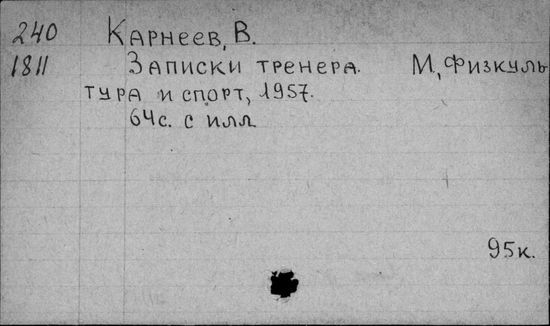 240 Карнеев, В.
1811 Записки тренера. М, Физкуль
тура и спорт, 1957.
64с. с илл.
95к.